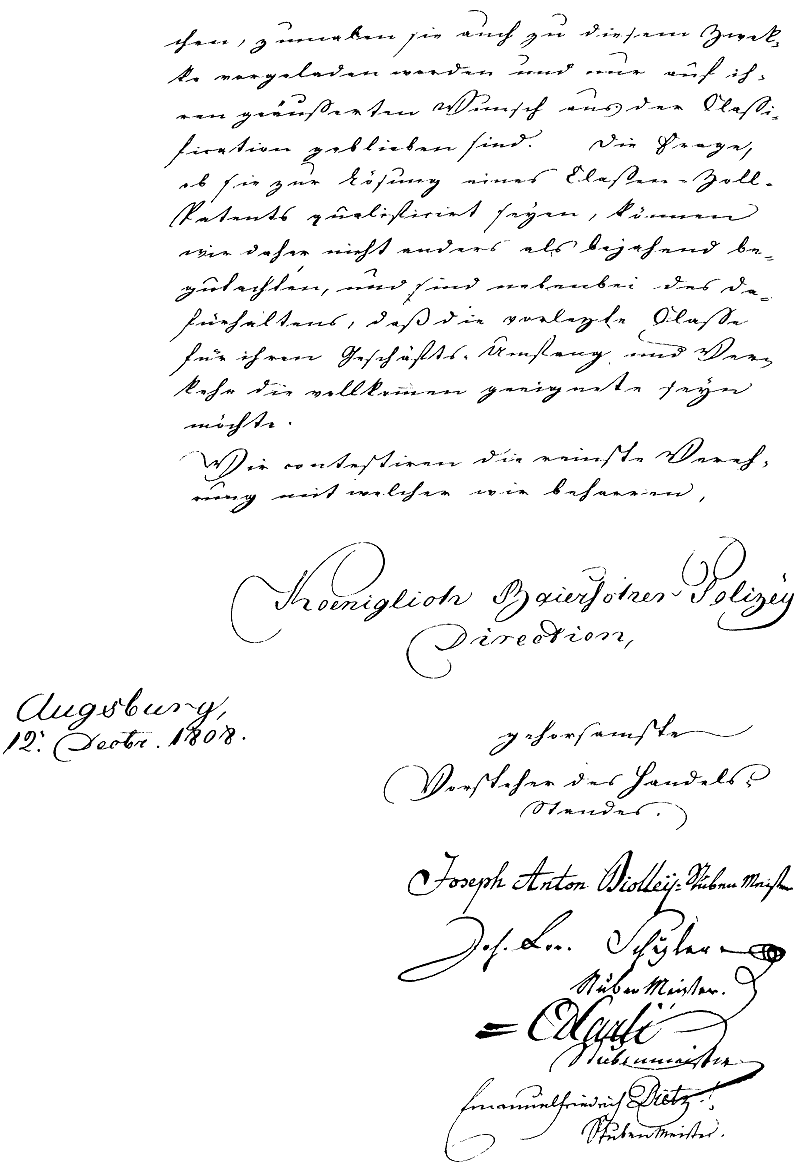 chen, zumalen sie auch zu diesem Zwek-
ke vorgeladen worden und nur auf ih-
ren geäußerten Wunsch aus der Classi-
fication geblieben sind. Die Frage,
ob sie zur Lösung eines Classen-Zoll-
Patents qualificirt seyen, können
wir daher nicht anders als bejahend be-
gutachten, und sind nebenbei des Da-
fürhaltens, daß die vorlezte Classe
für ihren Geschäfts-Umfang und Ver-
kehr die vollkommen geeignete seyn
möchte.
Wir contestiren die reinste Vereh-
rung mit welcher wir beharren,
Koeniglich Baierscher Polizey
Direction,
Augsburg,
12. Decbr. 1808.
gehorsamste
Vorsteher des Handels-
Standes.
Joseph Anton Stuben Meister
Joh. Lor. Schezler
Stuben Meister.
Carli
Stubenmeister
Emanuel friedrich Dietz
Stuben Meister.